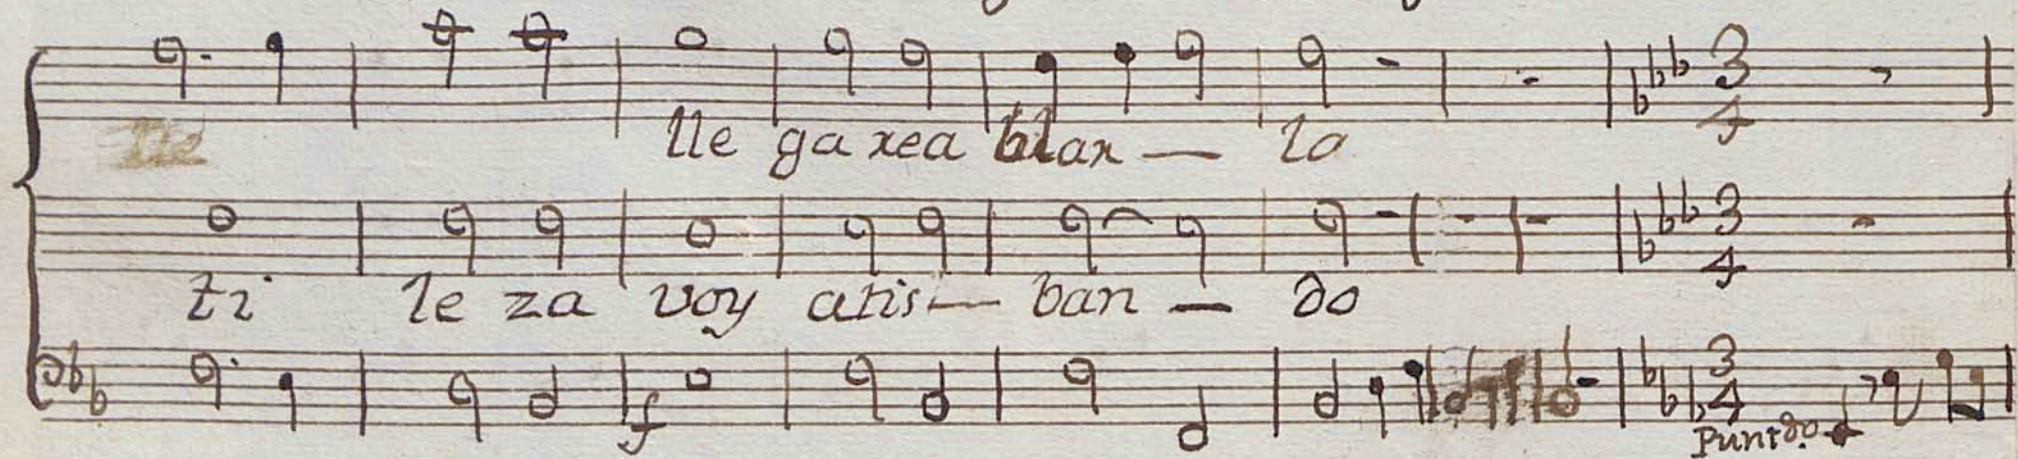 lle ga rea blar — lo
ti le za voy atis — ban — do
f
Puntdo.